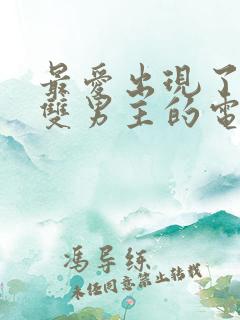 最愛出現了
雙男主的電
馮导综
未经同意禁止转载